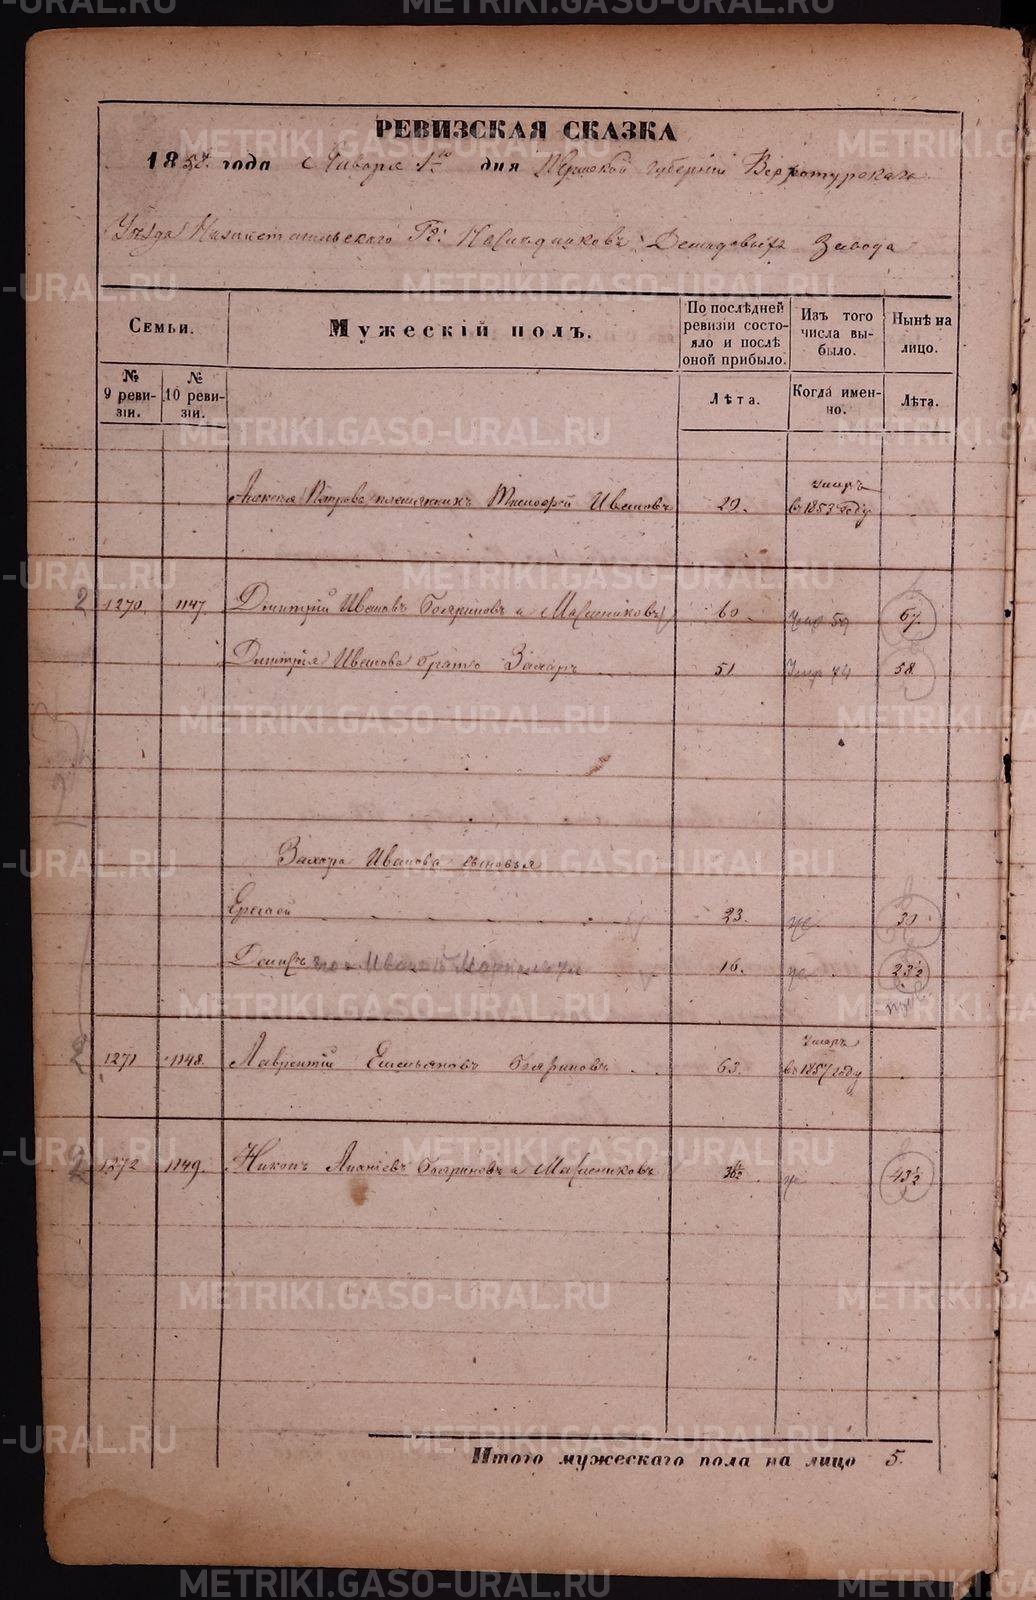 METRIKI.GASO-URAL.RU
РЕВИЗСКАЯ СКАЗКА
1858 года Января 1го дня Пермской Губернiи Верхотурскаго
Уѣзда Г: Наслѣдниковъ Демидовыхъ Завода
Семьи.
Мужескiй полъ.
По послѣдней ревизiи состояло и послѣ оной прибыло.
Изъ того числа выбыло.
Нынѣ на лицо.
№ 9 ревизiи.
№ 10 ревизiи.
Лѣта.
Когда именно.
Лѣта.
Петрова племянникъ Тимофей Ивановъ 29. Умеръ въ 1853 году
2 1270. 1147. Дмитрiй Ивановъ Бояриновъ и Масленниковъ 60. 67.
Дмитрiя Иванова братъ Захаръ 51. 58.
Захара Иванова сыновья
23.
16. 23½
2 1271 1148. Лаврентiй Емельяновъ Бояриновъ 63. Умеръ въ 1857 году
2 1272 1149. Никонъ Бояриновъ и Масленниковъ 43½
Итого мужескаго пола на лицо 5.